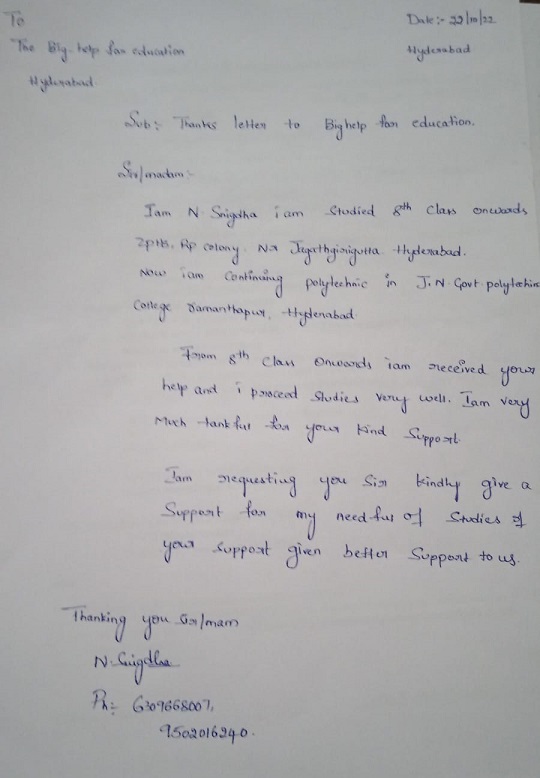 To
Date:- 22/10/22
The Big help for education
Hyderabad
Hyderabad
Sub:- Thanks letter to Bighelp for education.
Sir/madam:-
Iam N. Snigdha iam studied 8th class onwards
ZPHS, Rp colony. Nr Jagathgirigutta Hyderabad.
Now iam continuing polytechnic in J.N. Govt polytechnic
College Ramanthapur, Hyderabad.
From 8th class onwards iam received your
help and i proceed studies very well. Iam very
Much tankful for your kind support.
Iam requesting you Sir kindly give a
Support for my needful of studies &
your support given better support to us.
Thanking you Sir/mam
N. Snigdha
Ph:- 6309668007,
9502016240.